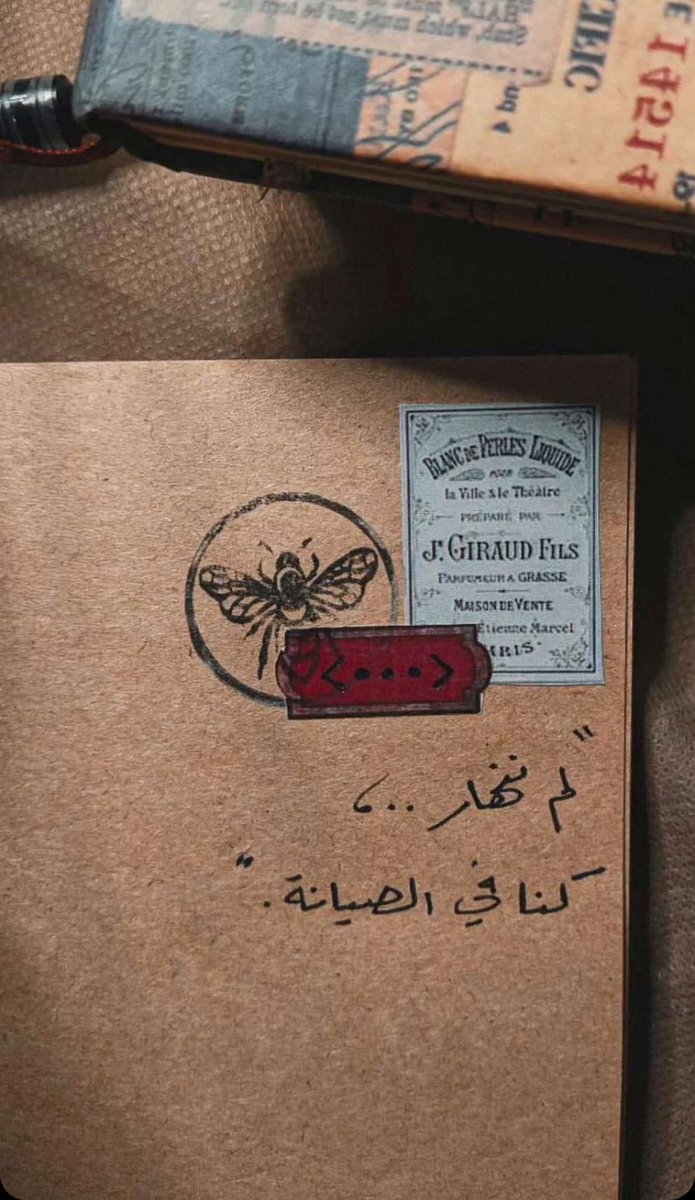 CIFIC
14514
nd 4
BLANC DE PERLES LIQUIDE
POUR
la Ville & le Théatre
PRÉPARÉ PAR
Jh. GIRAUD FILS
PARFUMEUR A GRASSE
MAISON DE VENTE
Étienne Marcel
RIS
<...>
"لم ننهار ..،
كنا في الصيانة."